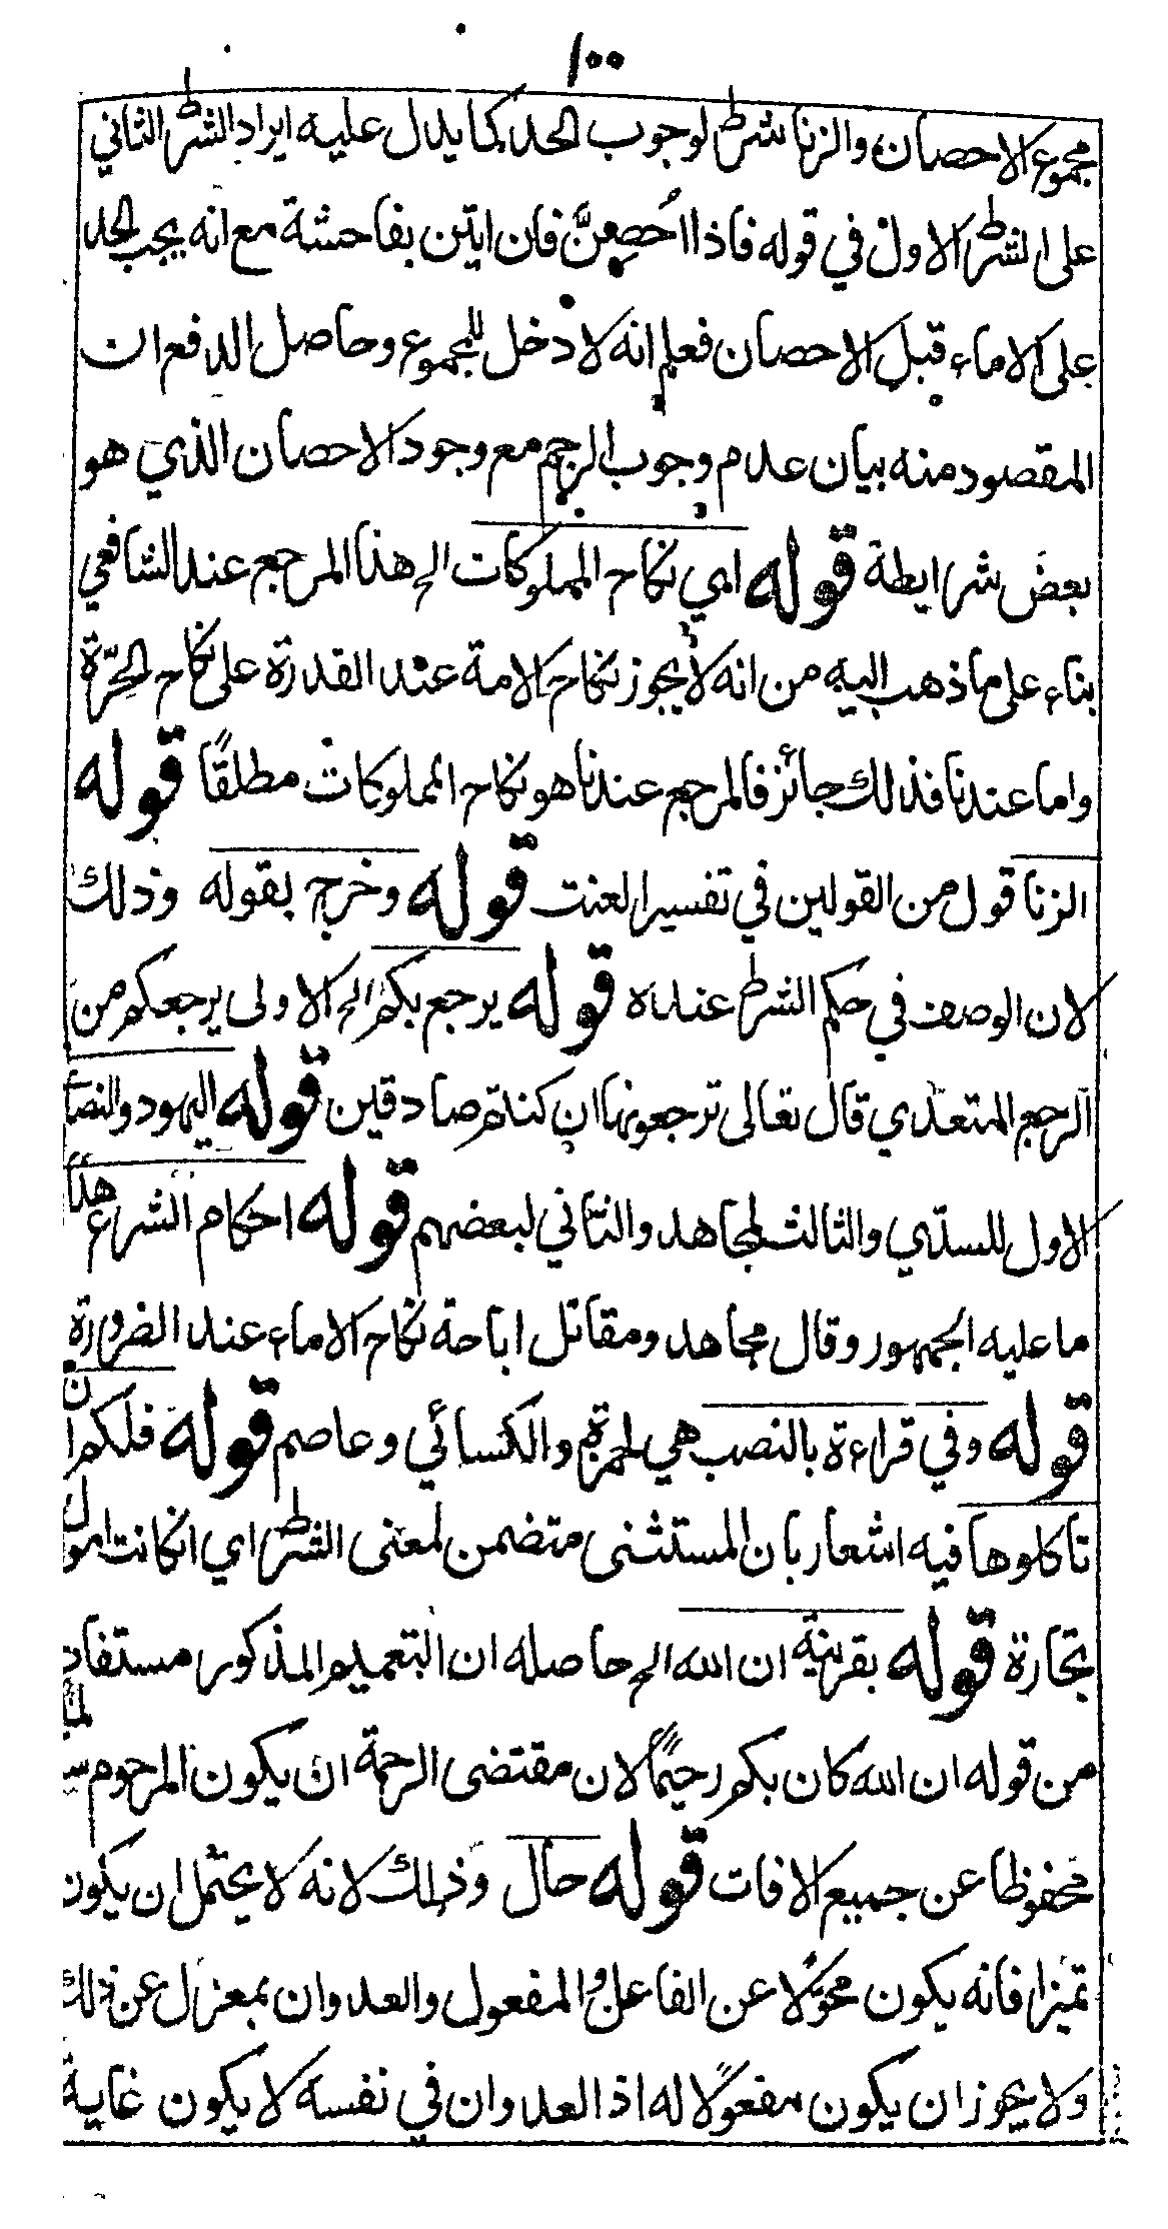 ١٠٠
مجموع الاحصان والزنا شرط لوجوب الحد كما يدل عليه ايراد الشرط الثاني
على الشرط الاول في قوله فاذا احصنّ فان اتين بفاحشة مع انه يجب الحد
على الاماء قبل الاحصان فعلم انه لا دخل للمجموع وحاصل الدفع ان
المقصود منه بيان عدم وجوب الرجم مع وجود الاحصان الذي هو
بعض شرايطة قوله اى نكاح المملوكات الخ هذا المرجع عند الشافعي
بناء على ما ذهب اليه من انه لا يجوز نكاح الامة عند القدرة على نكاح الحرّة
واما عندنا فذلك جائز فالمرجع عندنا هو نكاح المملوكات مطلقًا قوله
الزنا قول من القولين في تفسير العنت قوله وخرج بقوله وذلك
لان الوصف في حكم الشرط عنده قوله يرجع بكم الخ الاولى يرجعكم من
الرجع المتعدي قال تعالى ترجعونها ان كنتم صادقين قوله اليهود والنصا
الاول للسدّي والثالث لمجاهد والثاني لبعضهم قوله احكام الشرع هذا
ما عليه الجمهور وقال مجاهد ومقاتل اباحة نكاح الاماء عند الضرورة
قوله وفي قراءة بالنصب هي لحمزة والكسائي وعاصم قوله فلكم ان
تاكلوها فيه اشعار بان المستثنى متضمن لمعنى الشرط اي ان كانت اموال
تجارة قوله بقرينة ان الله الخ حاصله ان التعميم المذكور مستفاد
من قوله ان الله كان بكم رحيمًا لان مقتضى الرحمة ان يكون المرحوم
محفوظا عن جميع الافات قوله حال وذلك لانه لا يحتمل ان يكون
تميزا فانه يكون محوّلا عن الفاعل والمفعول والعدوان بمعزل عن ذلك
ولا يجوز ان يكون مفعولًا له اذ العدوان في نفسه لا يكون غاية